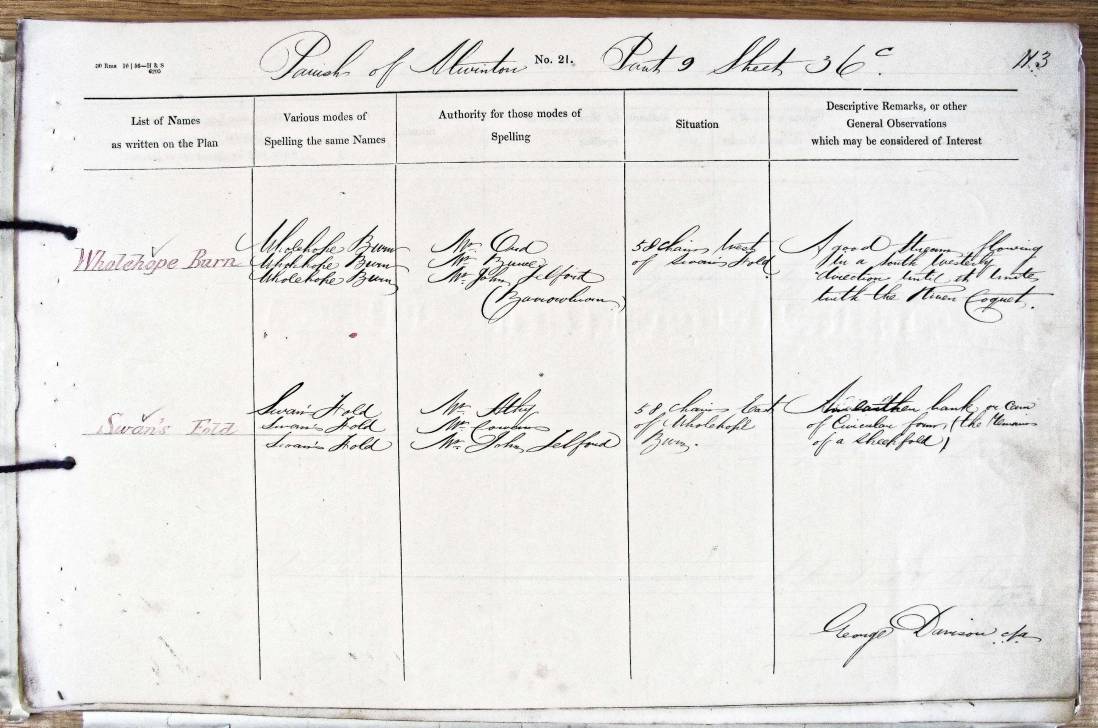 30 Rms 10 | 56—H & S
6205
Parish of Alwinton No. 21. Part 9 Sheet 36 c. 113
List of Names
as written on the Plan
Various modes of
Spelling the same Names
Authority for those modes of
Spelling
Situation
Descriptive Remarks, or other
General Observations
which may be considered of Interest
Wholehope Burn
Wholehope Burn
Wholehope Burn
Wholehope Burn
Mr. Ord
Mr. Bruce
Mr. John Telford
(Barrowburn)
58 chains West
of Swan's Fold
A good Stream flowing
in a south Westerly
direction until it Unites
with the River Coquet.
Swan's Fold
Swan's Fold
Swan's Fold
Swan's Fold
Mr. Athy
Mr.
Mr. John Telford
58 chains East
of Wholehope
Burn.
An earthen bank or
of Circular form, (the remains
of a sheepfold)
George Davison c/a